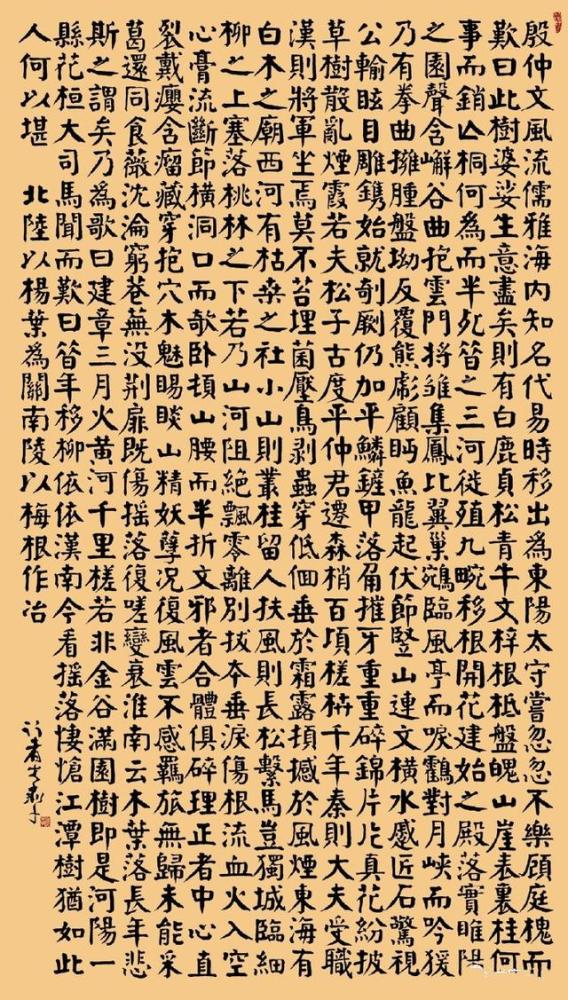 殷仲文風流儒雅海内知名代易時移出為東陽太守嘗忽忽不樂顧庭槐而
歎曰此樹婆娑生意盡矣則有白鹿貞松青牛文梓根柢盤魄山崖表裏桂何
事而銷亡桐何為而半死昔之三河徙殖九畹移根開花建始之殿落實睢陽
之園聲含嶰谷曲抱雲門將雛集鳳比翼巢鵷臨風亭而唳鶴對月峽而吟猨
乃有拳曲擁腫盤坳反覆熊彪顧眄魚龍起伏節豎山連文橫水蹙匠石驚視
公輸眩目雕鐫始就剞劂仍加平鱗鏟甲落角摧牙重重碎錦片片真花紛披
草樹散亂煙霞若夫松子古度平仲君遷森梢百頃槎枿千年秦則大夫受職
漢則將軍坐焉莫不苔埋菌壓鳥剝蟲穿低佪垂於霜露頓撼於風煙東海有
白木之廟西河有枯桑之社小山則叢桂留人扶風則長松繫馬豈獨城臨細
柳之上塞落桃林之下若乃山河阻絕飄零離別拔本垂淚傷根流血火入空
心膏流斷節橫洞口而欹卧頓山腰而半折文邪者合體俱碎理正者中心直
裂戴癭含瘤藏穿抱穴木魅睗睒山精妖孽況復風雲不感羈旅無歸未能采
葛還同食薇沈淪窮巷蕪没荆扉既傷搖落復嗟變衰淮南云木葉落長年悲
斯之謂矣乃為歌曰建章三月火黃河千里槎若非金谷滿園樹即是河陽一
縣花桓大司馬聞而歎曰昔年移柳依依漢南今看搖落悽愴江潭樹猶如此
人何以堪 北陸以楊葉為關南陵以梅根作冶